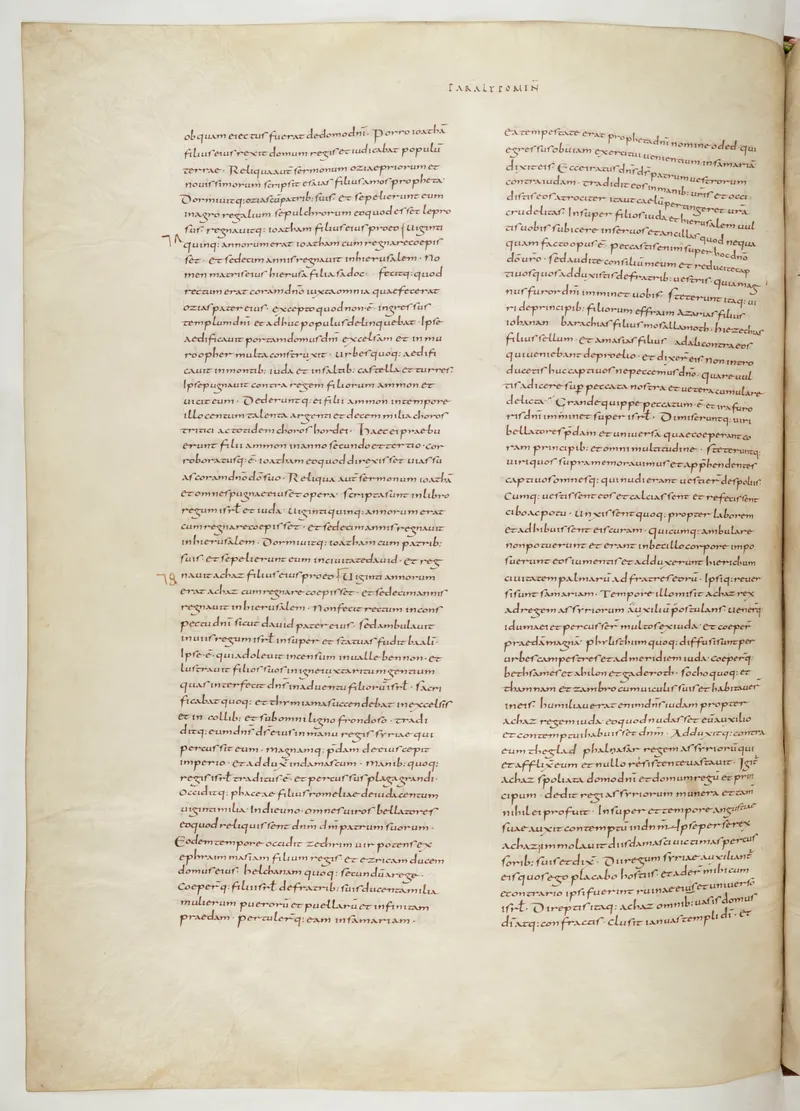 PARALYPOMIN̄
ob quam eiectus fuerat dedomo dnī· Porro ioathā
filius eius rexit domum regis et iudicabat populū
terrae· Reliqua aut̄ sermonum oziae priorum et
nouissimorum scripsit esaias filius amos propheta·
Dormiuitq: ozias cū patrib: suis· et sepelierunt eum
inagro regalium sepulchrorum eoquod esset lepro
sus· regnauitq: ioatham filius eius proeo· Uiginti
quinq: annorum erat ioatham cum regnare coepis
set· et sedecim annis regnauit inhierusalem· No
men matris eius hierusa filia sadoc· fecitq: quod
rectum erat coram dn̄o iuxta omnia quae fecerat
ozias pater eius· excepto quod non ē· ingressus
templum dnī et adhuc populus delinquebat· Ipse
aedificauit portam domus dnī excelsam et in mu
ro opher multa construxit· urbes quoq: aedifi
cauit inmontib: iuda et insaltib: castella et turres·
Ipse pugnauit contra regem filiorum ammon et
uicit eum· Dederuntq: ei filii ammon intempore
illo centum talenta argenti et decem milia choros
tritici ac totidem choros hordei· Haec ei praebu
erunt filii ammon inanno secundo et tertio· cor
roboratusq: ē· ioatham eoquod direxisset uias su
as coram dn̄o dō suo· Reliqua aut̄ sermonum ioathā
et omnes pugnae eius et opera· scripta sunt inlibro
regum isrl̄ et iuda· Uigintiquinq: annorum erat
cum regnare coepisset· et sedecim annis regnauit
inhierusalem· Dormiuitq: ioatham cum patrib:
suis· et sepelierunt eum inciuitate dauid· et reg
nauit achaz filius eius proeo· Uiginti annorum
erat achaz cum regnare coepisset· et sedecim annis
regnauit inhierusalem· Non fecit rectum incons
pectu dnī sicut dauid pater eius· sed ambulauit
inuiis regum isrl̄· insuper et statuas fudit baali·
Ipse ē· qui adoleuit incensum inualle bennon· et
lustrauit filios suos inigne iuxta ritum gentium
quas interfecit dn̄s inaduentu filiorū isrl̄· sacri
ficabat quoq: et thymiama succendebat inexcelsis
et in collib: et sub omni ligno frondoso· tradi
ditq: eum dn̄s ds̄ eius inmanu regis syriae qui
percussit eum· magnamq: p̄dam de eius cepit
imperio· et adduxit indamascum· Manib: quoq:
regis isrl̄ traditus ē· et percussus plaga grandi·
Occiditq: phaceae filius romeliae deiuda centum
uiginti milia· Indie uno· omnes uiros bellatores
eoquod reliquissent dnm̄ dm̄ patrum suorum·
Eodem tempore occidit zechrim uir potens ex
ephraim masiam filium regis et ezricam ducem
domus eius· helchanam quoq: secundū arege·
Coeper̄q: filii isrl̄· defratrib: suis ducenta milia
mulierum puerorū et puellarū et infinitam
praedam· pertuler̄q: eam insamariam·
Ea tempestate erat propheta dnī nomine oded· qui
egressus obuiam exercitui uenientium insamariā
dixit eis· Ecce iratus dn̄s ds̄ patrum uestrorum
contra iudam· tradidit eos inmanib: uris̄ et occi
distis eos atrociter· ita ut caelū pertangeret ura
crudelitas· Insuper filios iuda et hierusalem uul
tis uobis subicere inseruos et ancillas· quod nequa
quam facto opus ē· peccastis enim super hoc dn̄o
dō uro· sed audite consilium meum et reducite cap
tiuos quos adduxistis defratrib: uestris· quia mag
nus furor dnī imminet uobis· Steterunt itaq: ui
ri deprincipib: filiorum effraim azarias filius
iohanan barachias filius mosallamoth· hiezechias
filius sellum· et amasias filius adali contra eos
qui ueniebant deproelio· et dixer̄ eis· non intro
ducetis huc captiuos ne peccemus dn̄o· quare uul
tis adicere sup̄ peccata nostra et uetera cumulare
delicta· Grande quippe peccatum ē· et ira furo
ris dnī imminet super isrl̄· Dimiseruntq: uiri
bellatores p̄dam et uniuersa quae coeperant co
ram principib: et omni multitudine· steteruntq:
uiri quos supra memorauimus et app̄hendentes
captiuos omnesq: qui nudi erant uestier̄ despoliis·
Cumq: uestissent eos et calciassent et refecissent
cibo ac potu· unxissent quoq: propter laborem
et adhibuissent eis curam· quicumq: ambulare
non potuerunt et erant inbecillo corpore impo
suerunt eos iumentis et adduxerunt hierichum
ciuitatem palmarū ad fratres eorū· Ipsiq: reuer
si sunt samariam· Tempore illo misit achaz rex
ad regem assyriorum auxiliū postulans· ueneer̄q:
idumaei et percusser̄ multos exiuda· et coeper̄
praedā magnā· phylisthim quoq: diffusi sunt per
urbes campestres et admeridiem iuda· coeper̄q:
bethsames et ahilon et gaderoth· socho quoq: et
thamnam et zambro cum uiculis suis et habitauer̄
ineis· humiliauerat enim dn̄s iudam propter
achaz regem iuda· eoquod nudasset eū auxilio
et contemptu habuisset dnm̄· Adduxitq: contra
eum theglad phalnasar regem assyriorū qui
et afflixit eum et nullo resistente uastauit· Igit̄
achaz spoliata domo dnī et domum regū et prin
cipum· dedit regi assyriorum munera et tam̄
nihil ei profuit· Insuper et tempore angustiae
suae auxit contemptū indnm̄· Ipse per se rex
achaz immolauit diis damasci uictimas percus
sorib: suis et dix̄· Dii regum syriae auxiliant̄
eis quos ego placabo hostiis et ader̄ mihi cum
econtrario ipsi fuerint ruinae eius et uniuerso
isrl̄· Direptis itaq: achaz omnib: uasis domus
dī atq: confractis· clusit ianuas templi dī· et